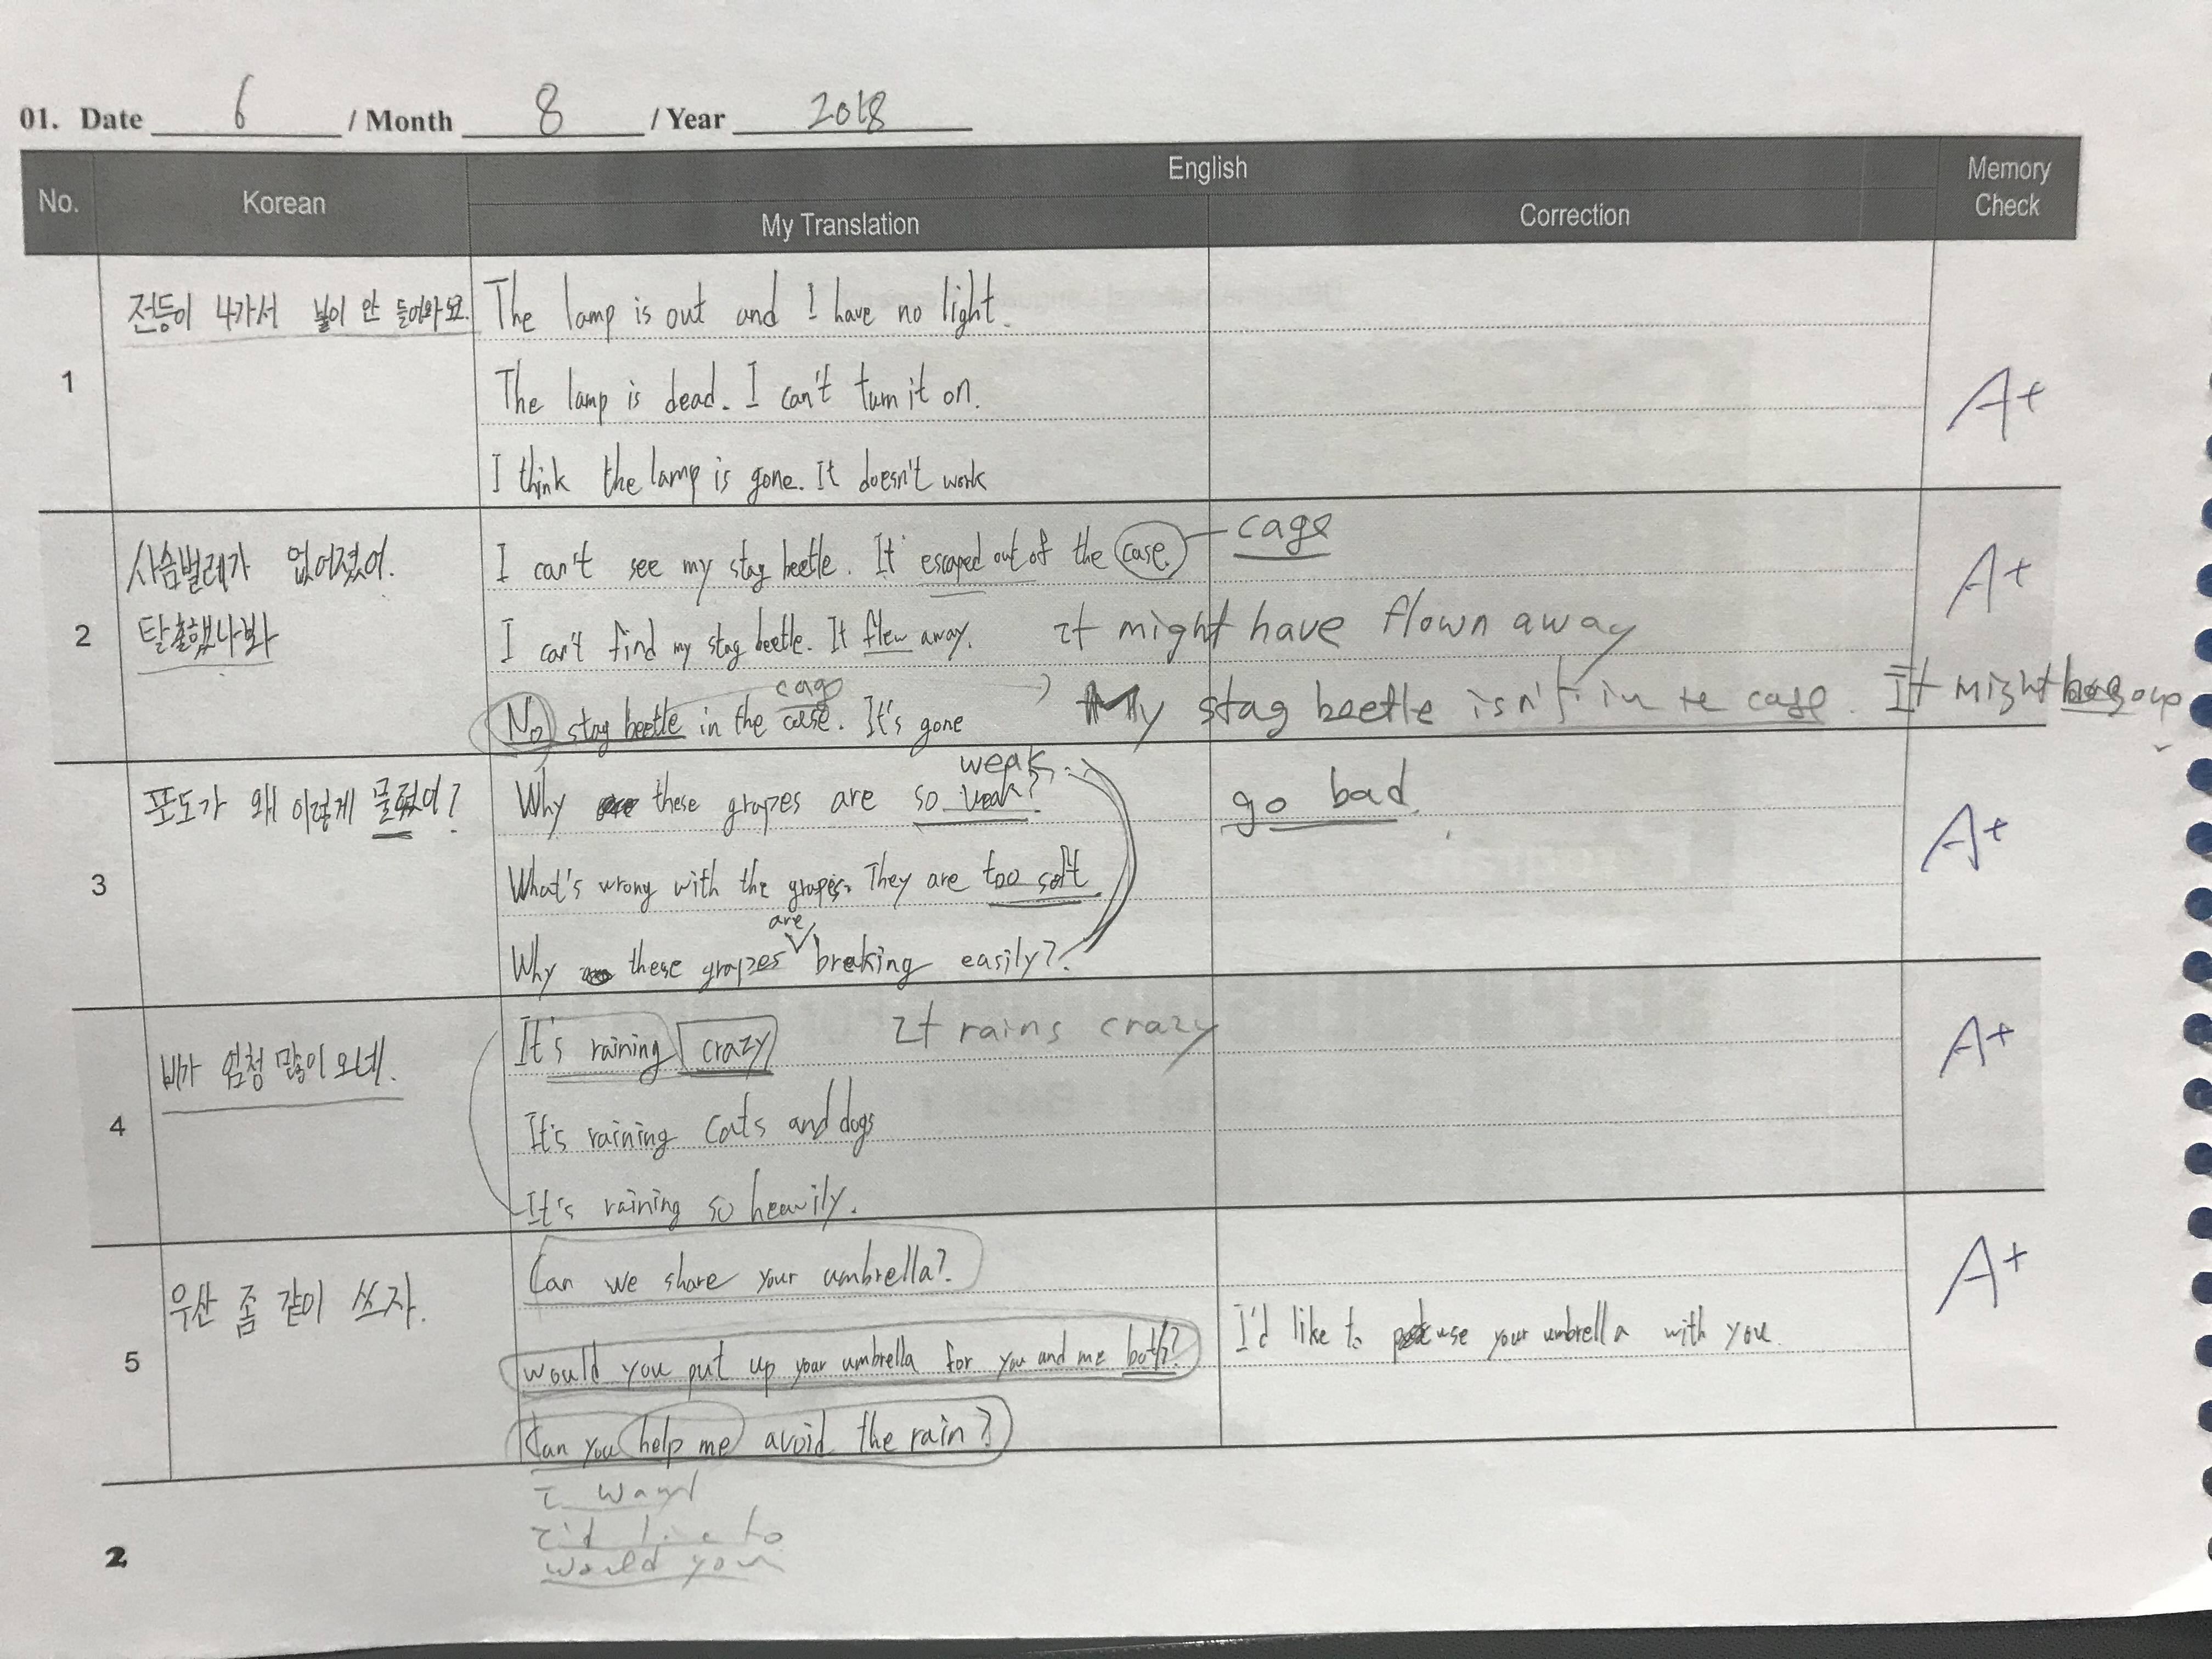 01. Date 6 / Month 8 / Year 2018
No. Korean English Memory Check
My Translation Correction
1
전등이 나가서 불이 안 들어와요.
The lamp is out and I have no light.
The lamp is dead. I can't turn it on.
I think the lamp is gone. It doesn't work
A+
2
사슴벌레가 없어졌어.
탈출했나봐
I can't see my stag beetle. It escaped out of the case. cage
I can't find my stag beetle. It flew away. It might have flown away
cage
No stag beetle in the case. It's gone My stag beetle isn't in the cage. It might
A+
3
포도가 왜 이렇게 물렀어?
weak
Why these grapes are so weak? go bad.
What's wrong with the grapes. They are too soft
are
Why these grapes breaking easily?
A+
4
비가 엄청 많이 오네.
It's raining crazy It rains crazy
It's raining cats and dogs
It's raining so heavily.
A+
5
우산 좀 같이 쓰자.
Can we share your umbrella?
would you put up your umbrella for you and me both? I'd like to use your umbrella with you.
Can you help me avoid the rain?
A+
I want
I'd like to
would you
2